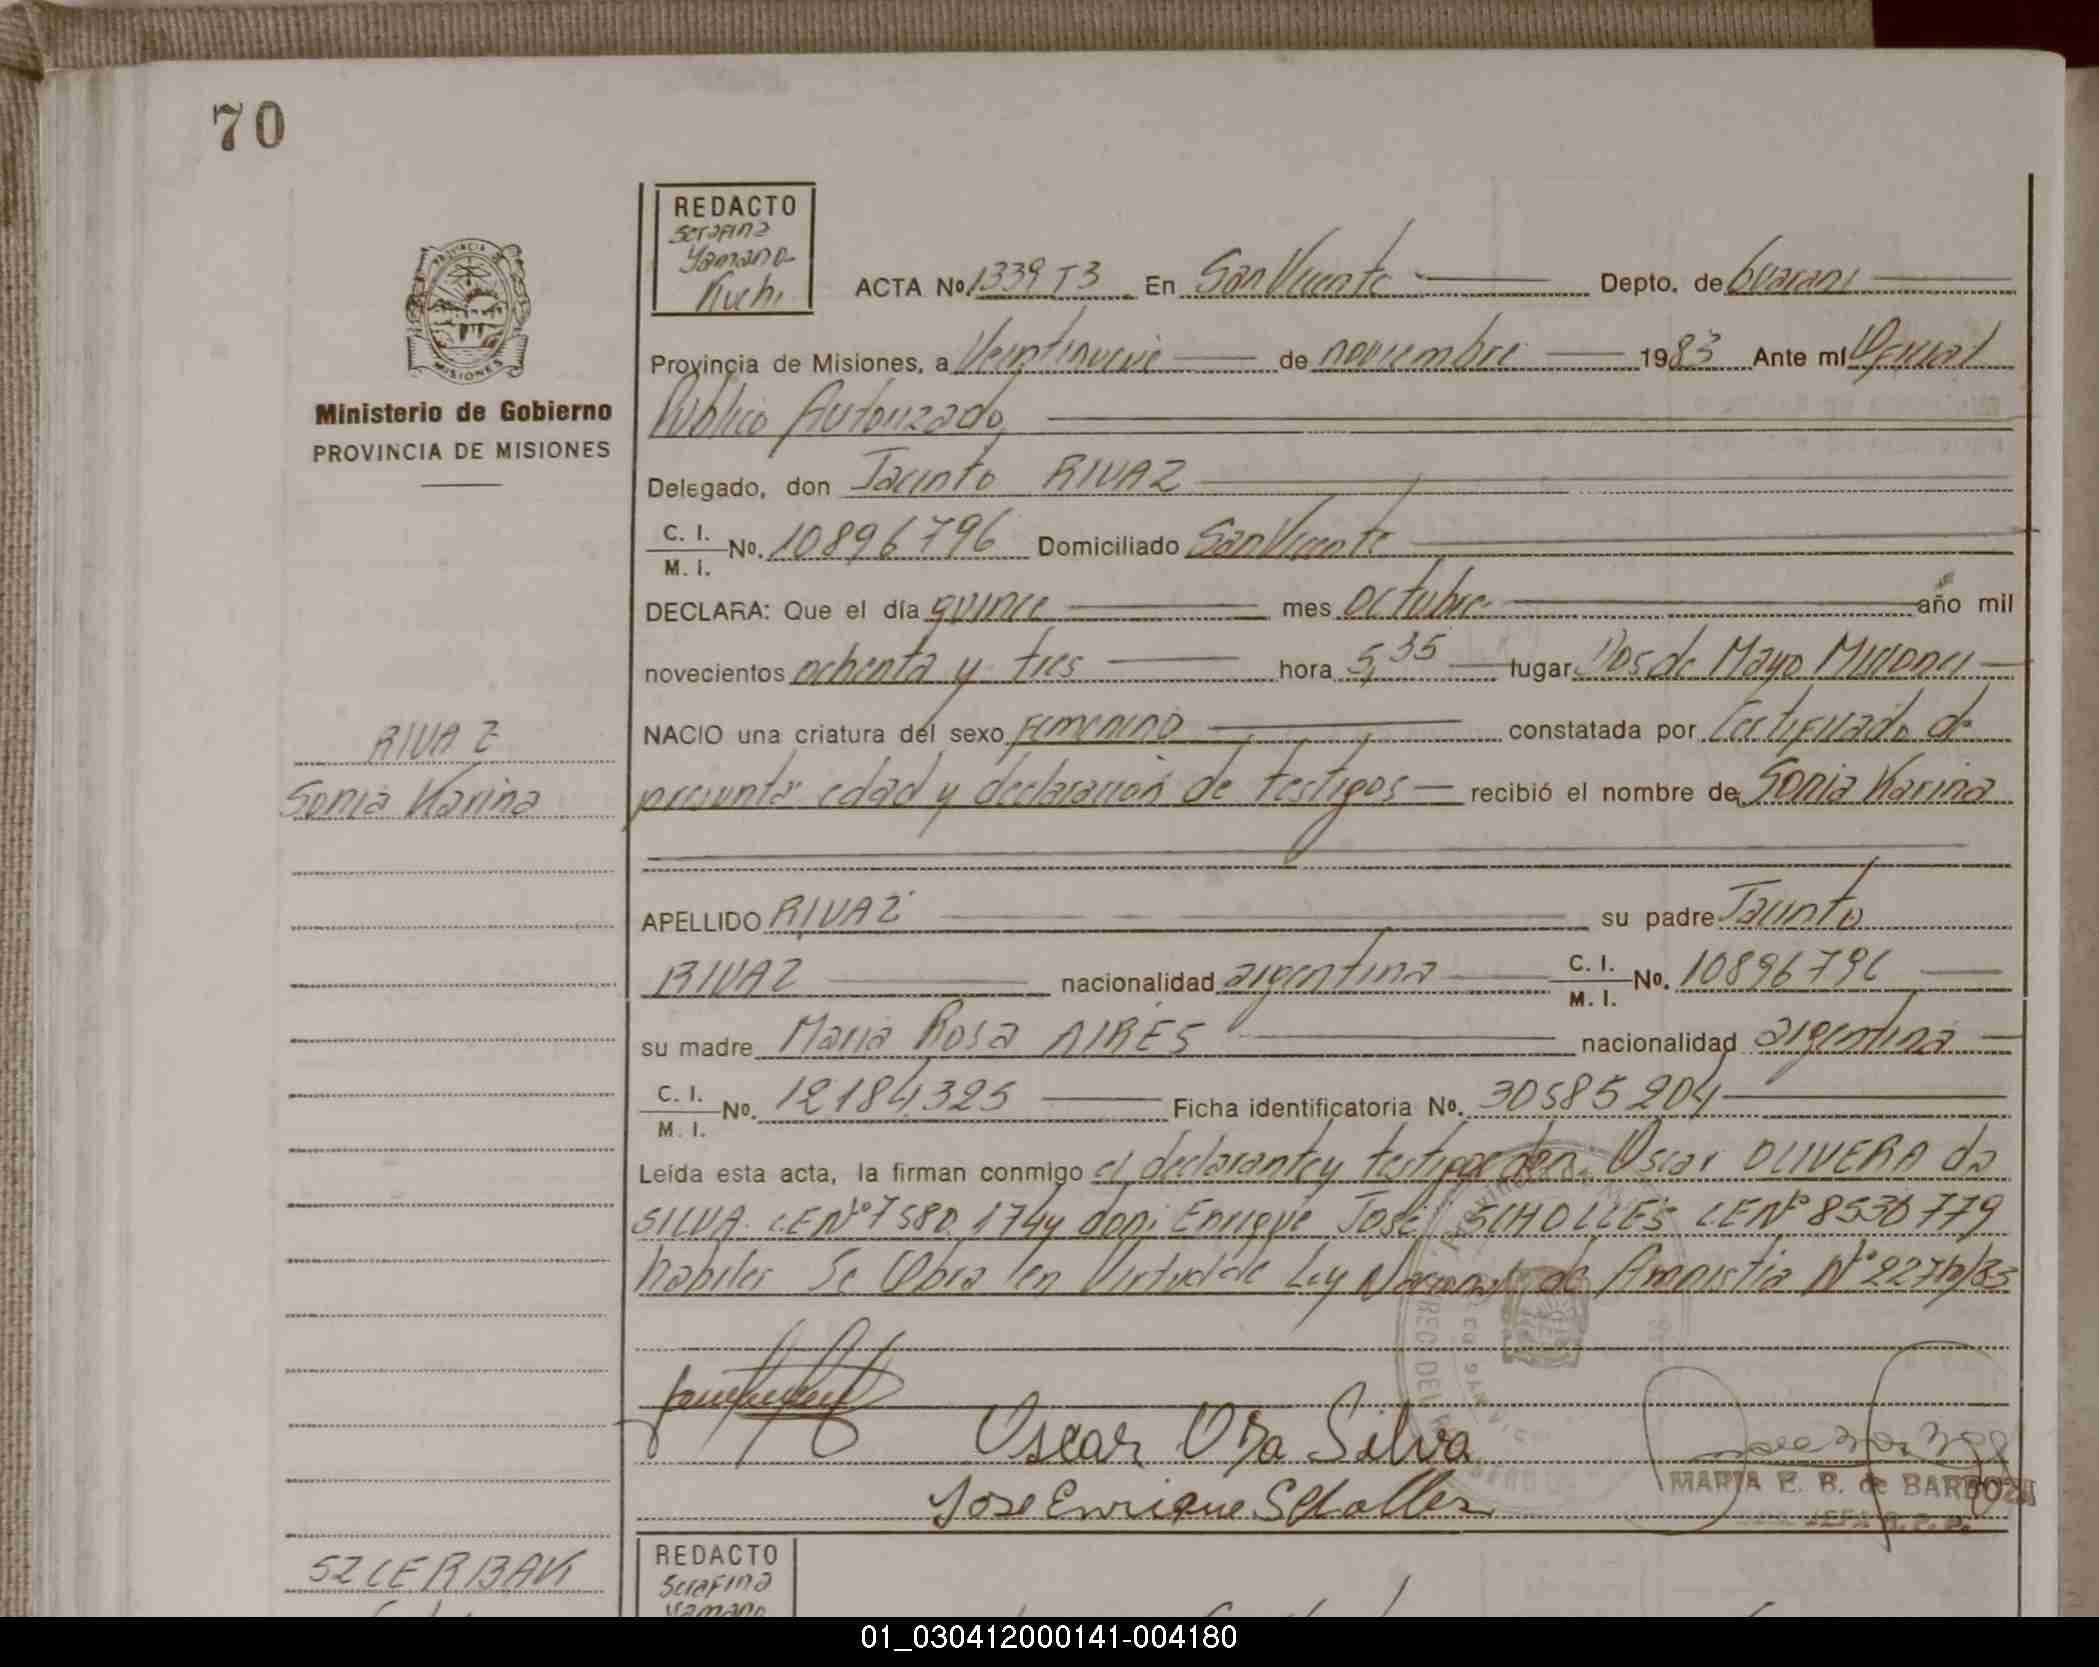 70
REDACTO
Serafina
Yamano
Kuchi
ACTA No. 1339 T3 En San Vicente Depto. de Guarani
Provincia de Misiones, a Veintinueve de noviembre 1983 Ante mi Oficial
Publico Autorizado
Ministerio de Gobierno
PROVINCIA DE MISIONES
Delegado, don Jacinto RIVAZ
C. I.
M. I. No. 10896796 Domiciliado San Vicente
DECLARA: Que el día quince mes octubre año mil
novecientos ochenta y tres hora 5,35 lugar Dos de Mayo Misiones
NACIO una criatura del sexo femenino constatada por Certificado de
presunta edad y declaración de testigos recibió el nombre de Sonia Karina
RIVAZ
Sonia Karina
APELLIDO RIVAZ su padre Jacinto
RIVAZ nacionalidad argentina C. I.
M. I. No. 10896796
su madre Maria Rosa AIRES nacionalidad argentina
C. I.
M. I. No. 12184325 Ficha identificatoria No. 30585204
Leída esta acta, la firman conmigo el declarante y testigos don Oscar OLIVERA da
SILVA LE Nº 7580174 y don Enrique José SCHOLLES LE Nº 8536779
habiles Se Obra en Virtud de Ley Nacional de Amnistia Nº
Oscar Ora Silva
Jose Enrique Scholles
MARIA E. B. de BARBOZA
JEFA R. P. P.
SZCERBAK
REDACTO
Serafina
Yamano
01_030412000141-004180